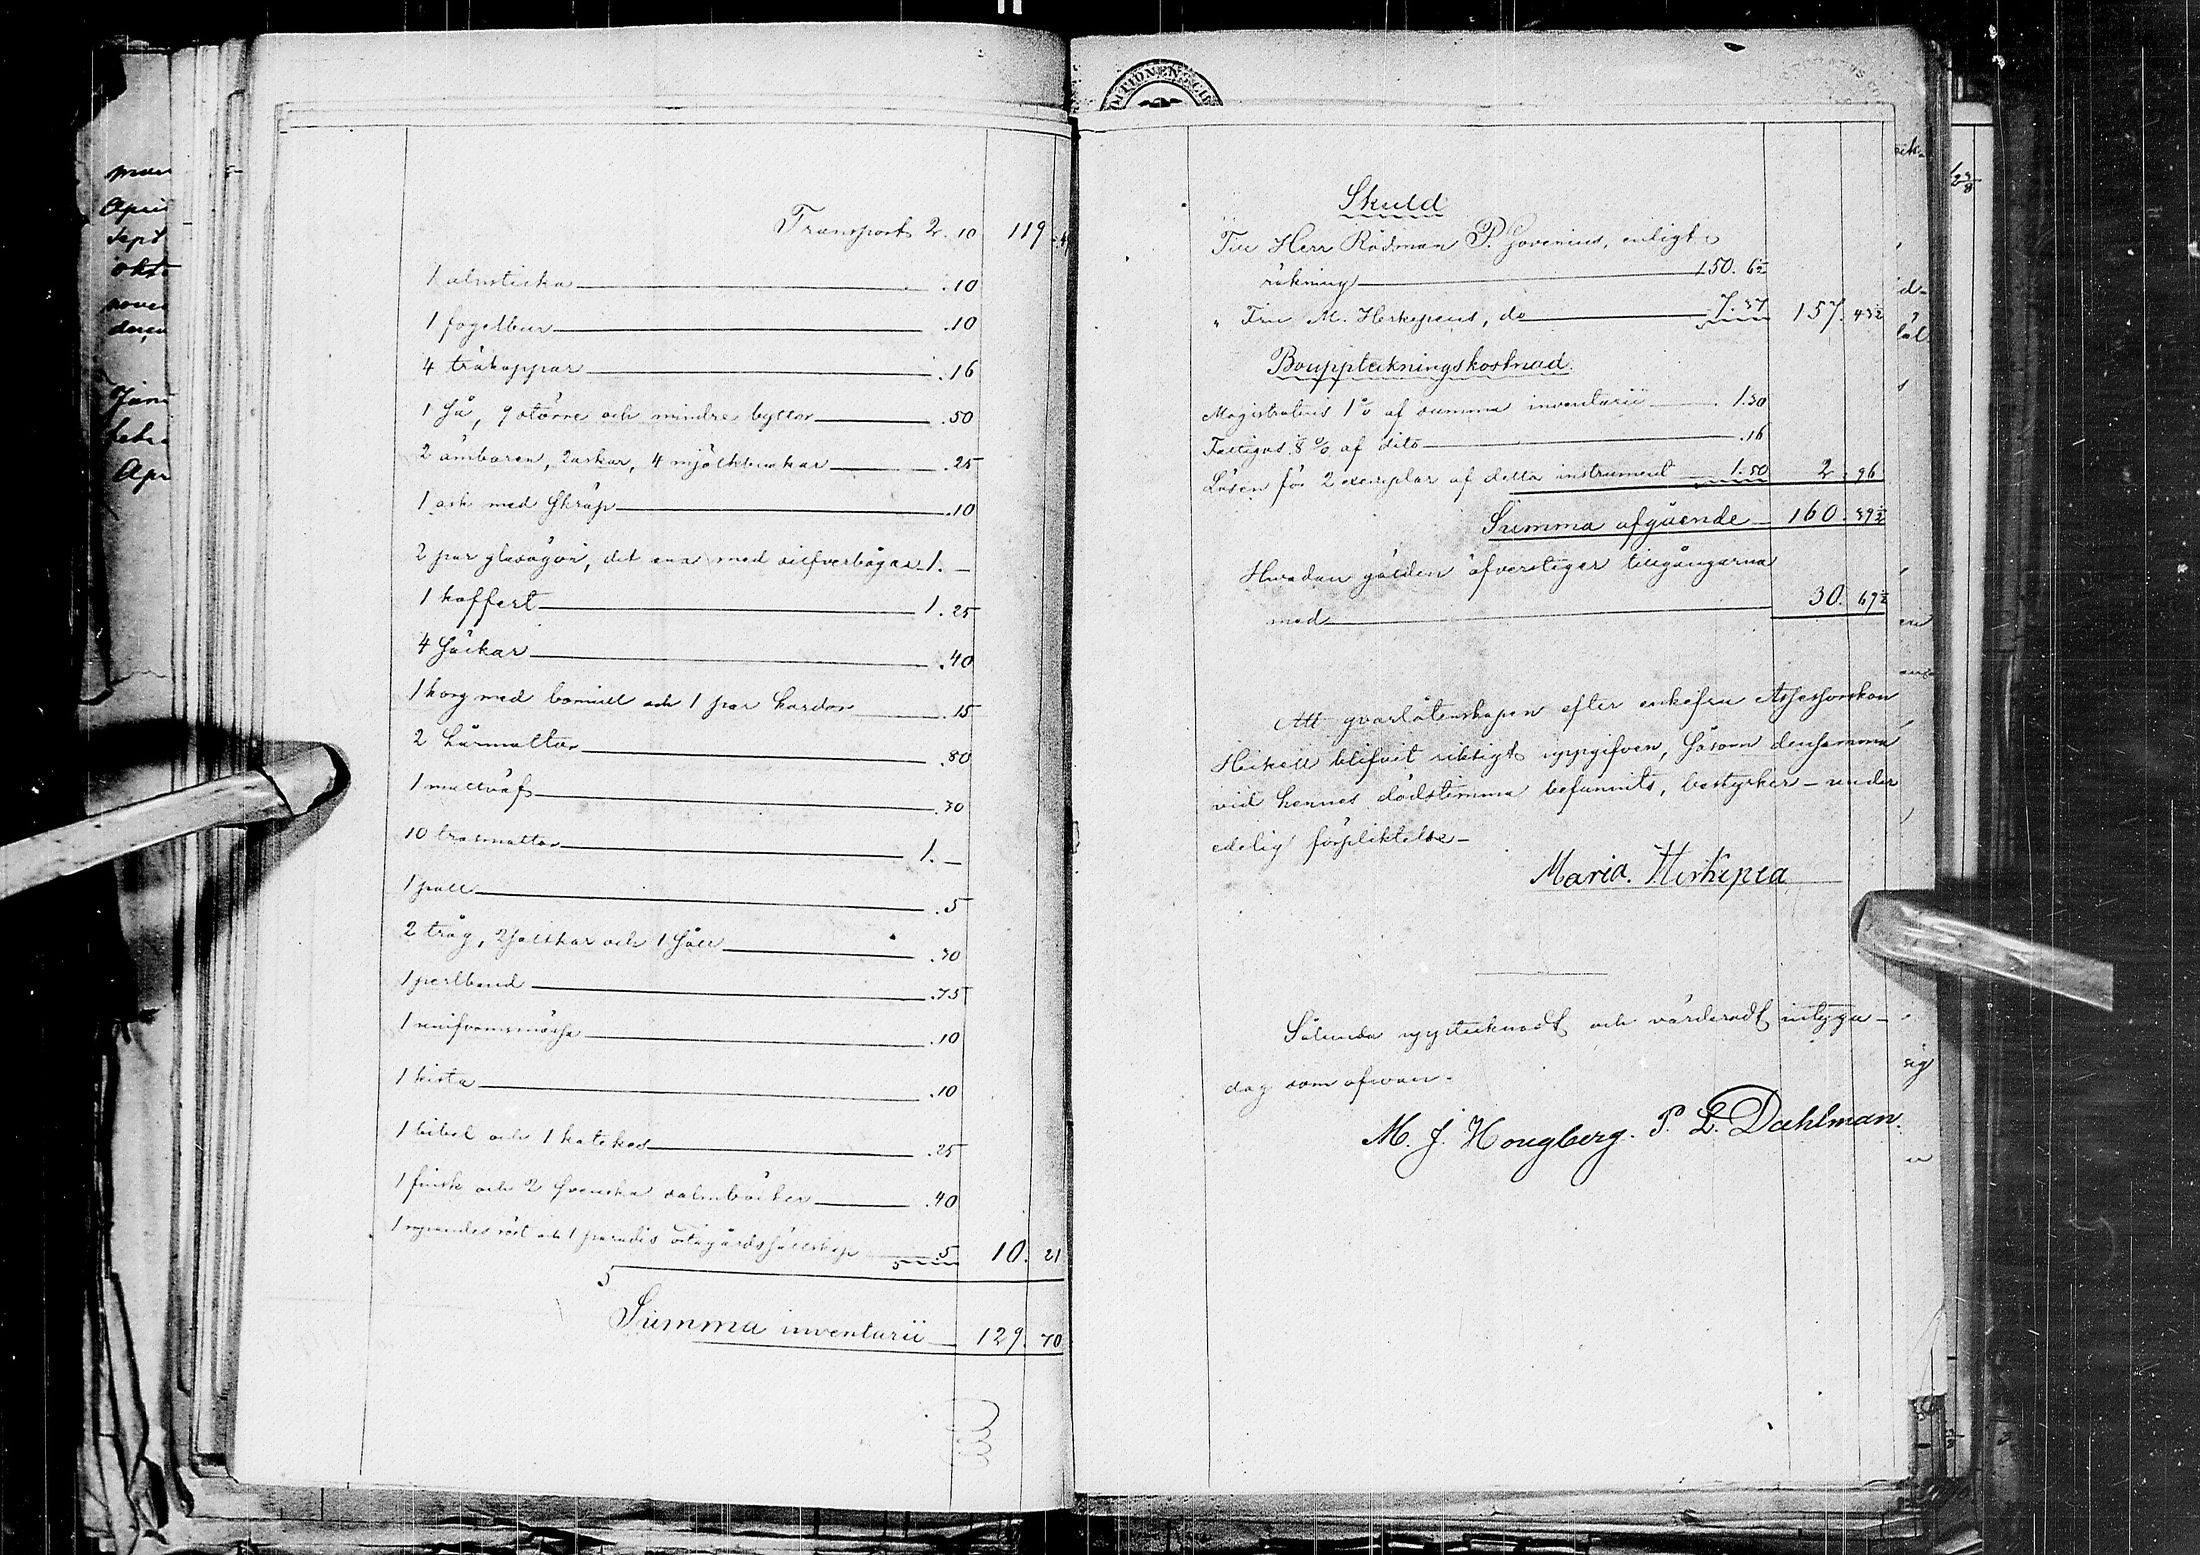 Transport 2. 10 119. 4
1 alnsticka .10
1 fogelbur .10
4 träkoppar .16
1 så, 9 större och mindre byttor .50
2 ämbaren, 2 askar, 4 mjölkbunkar .25
1 ask med skräp .10
2 par glasögon, det ena med silfverbågar 1. —
1 koffert 1. 25
4 säckar .40
1 korg med bomull och 1 par kardor .15
2 hårmattor .80
1 mattväf .30
10 trasmattor 1. —
1 pall .5
2 tråg, 2 och 1 såll .30
1 perlband .75
1 uniformsmössa .10
1 kista .10
1 bibel och 1 katekes .25
1 finsk och 2 svenska salmböcker .40
1 röst och 1 paradis 5 10. 21
Summa inventarii 129. 70
Skuld
Till Herr Rådman P. Govenius, enligt
räkning 150. 6½
" Fru M. Herkepeus, do 7. 37 157. 43½
Bouppteckningskostnad.
Magistratens 1% af summa inventarii 1.30
Fattigas ⅛ % af dito .16
Lösen för 2 exemplar af detta instrument 1.50 2. 96
Summa afgående 160. 39½
Hvadan gälden öfverstiger tillgångarna
med 30. 69½
Att qvarlåtenskapen efter enkefru Assessorskan
Heikell blifvit riktigt uppgifven, såsom densamma
vid hennes dödstimma befunnits, bestyrker — under
edelig förpliktelse —
Maria. Herkepea
Sålunda uppteknadt och värderadt intyga —
dag som ofvan.
M. J. Hougberg. P. L. Dahlman.